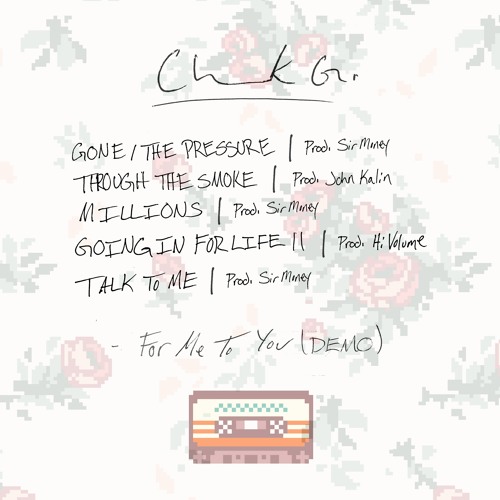 Ch K G.
GONE / THE PRESSURE | Prod. SirMoney
THROUGH THE SMOKE | Prod. John Kalin
MILLIONS | Prod. SirMoney
GOING IN FOR LIFE II | Prod. Hi Volume
TALK TO ME | Prod. SirMoney
- For Me To You (DEMO)